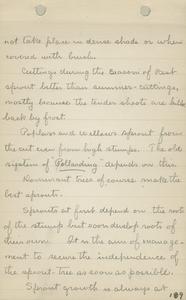 not take place in dense shade or when
covered with brush.
Cuttings during the season of rest
sprout better than summer-cuttings,
mostly because the tender shoots are killed
back by frost.
Poplars and willows sprout from
the cut even from high stumps. The old
system of "Pollarding" depends on this.
Dominant trees of course make the
best sprouts.
Sprouts at first depend on the roots
of the stump but soon develop roots of
their own. It is the aim of manage-
ment to secure the independence of
the sprout-tree as soon as possible.
Sprout growth is always at
189